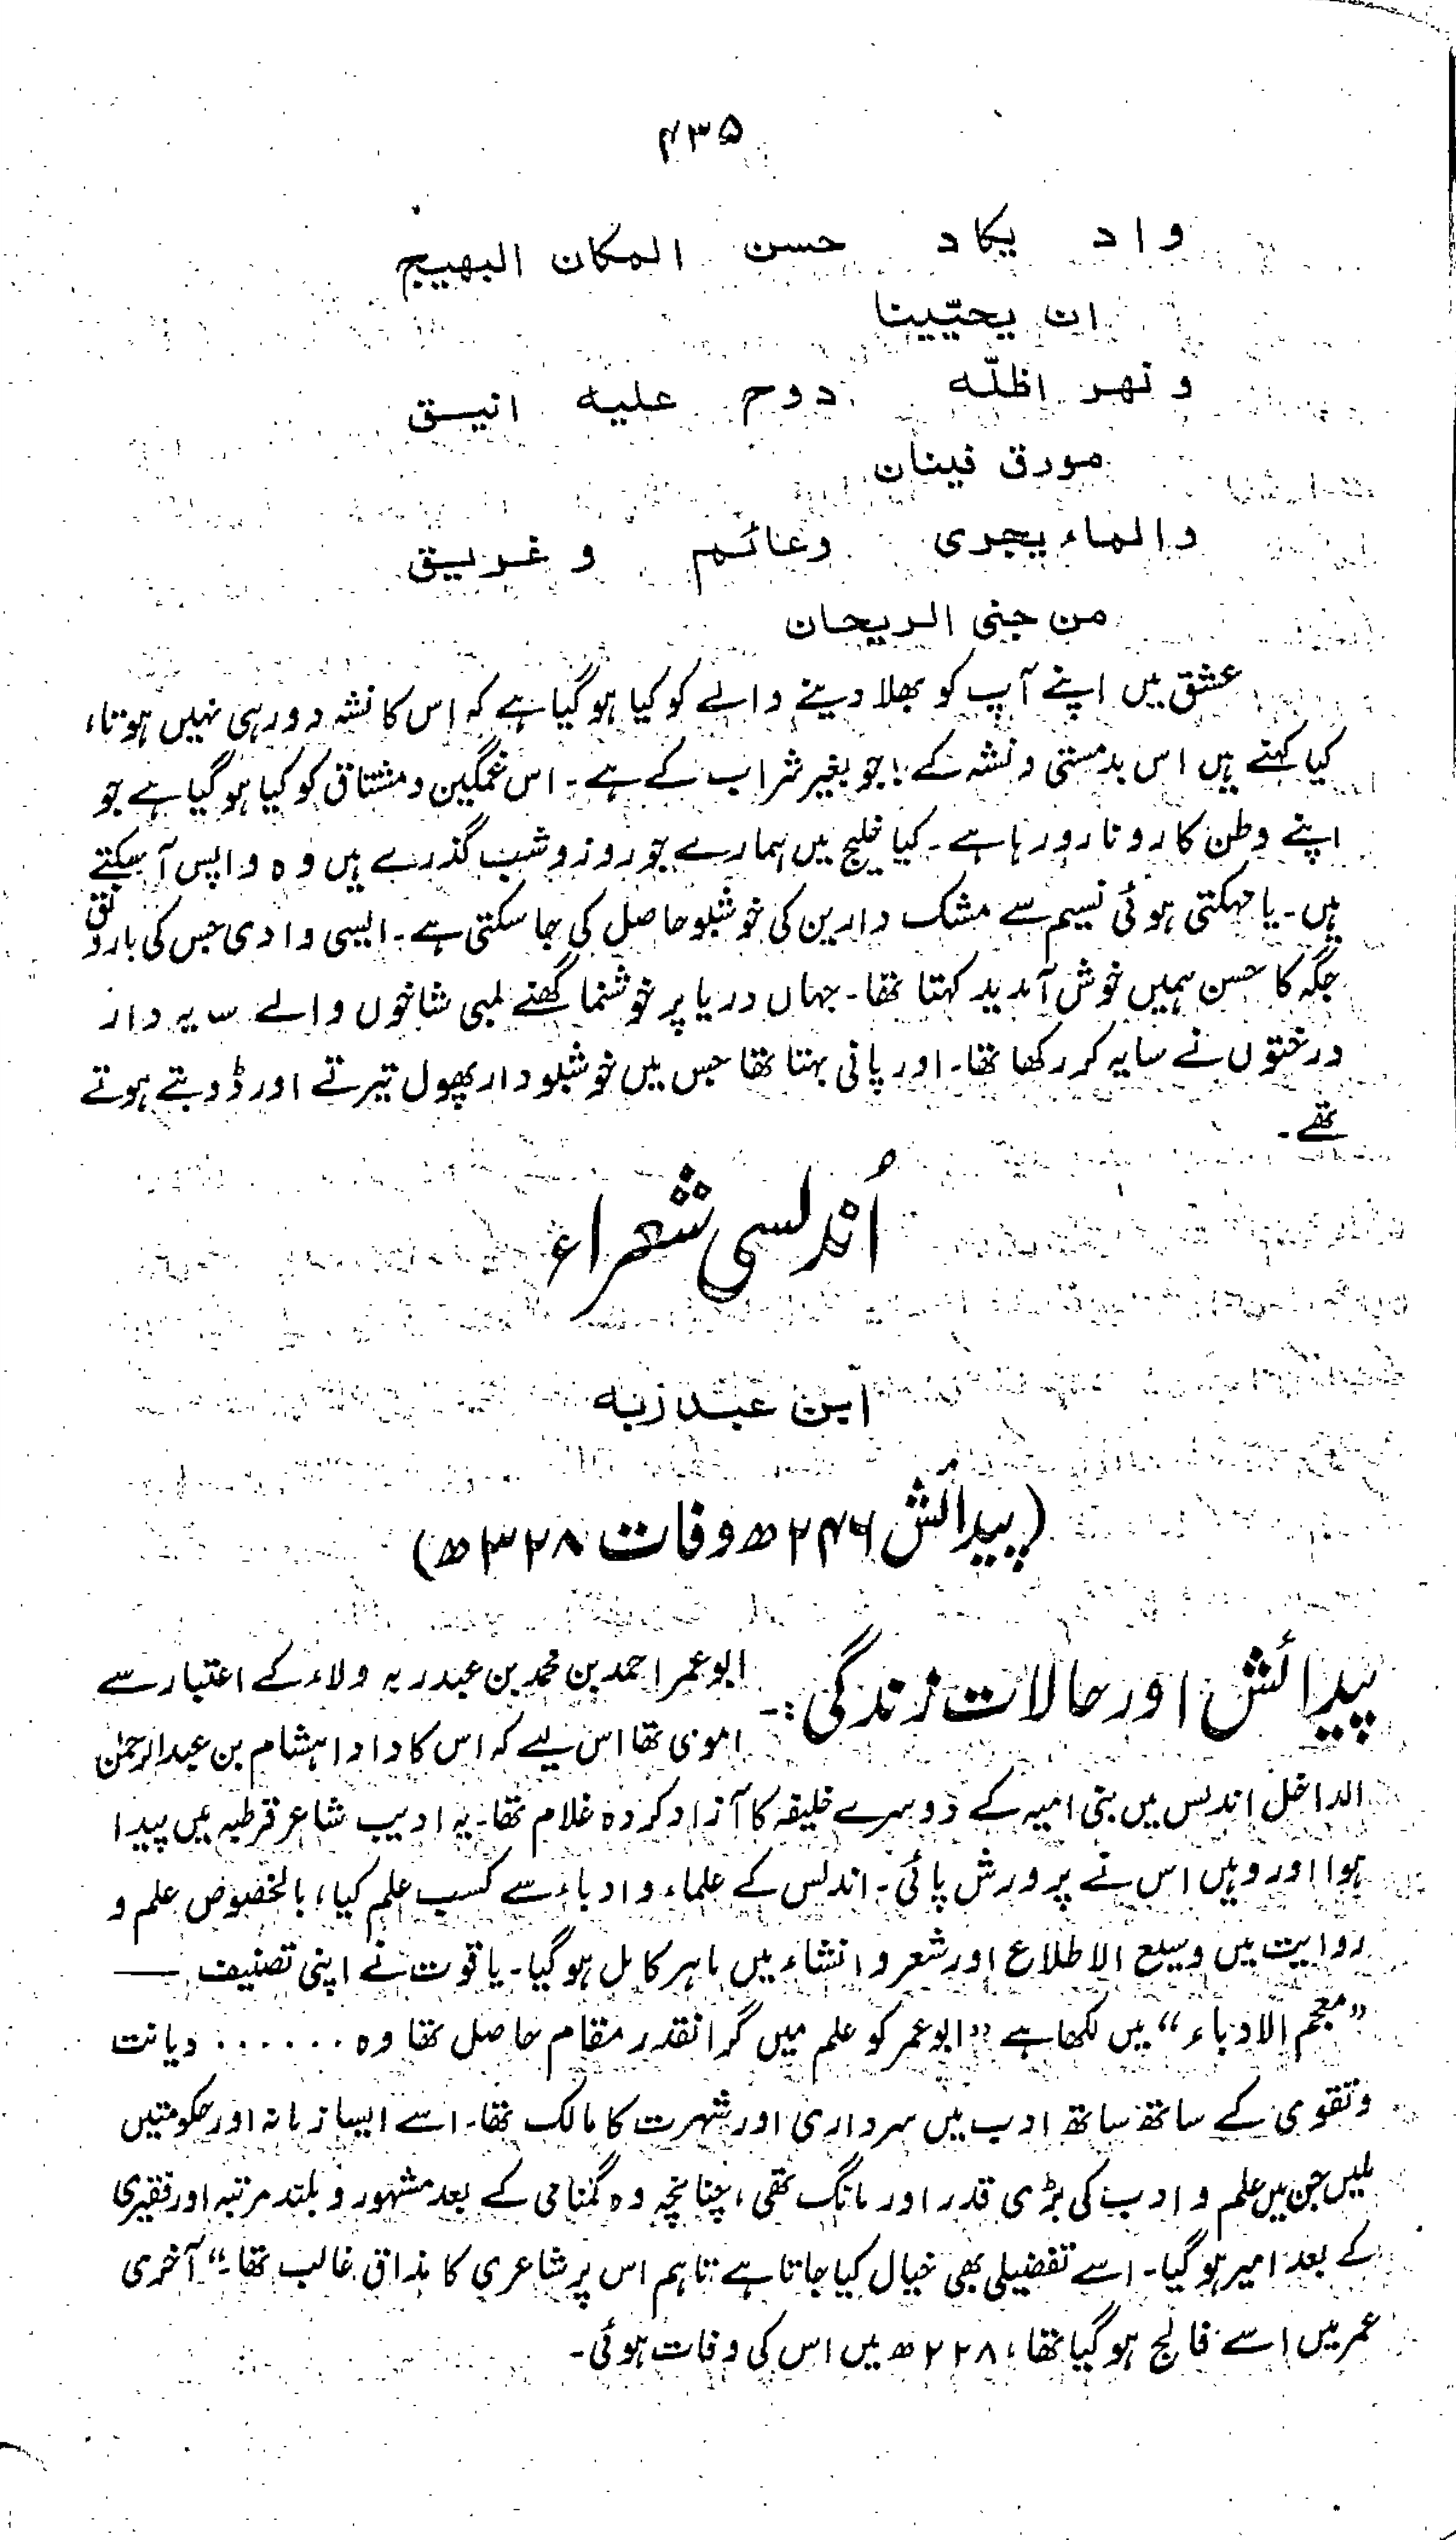 ۴۳۵
واد یکاد حسن المکان البهیج
ان یحیّینا
و نهر اظلّه دوح علیه انیق
مورق فینان
والماء یجری وعائم و غریق
من جنی الریحان
عشق میں اپنے آپ کو بھلا دینے والے کو کیا ہو گیا ہے کہ اس کا نشہ دور ہی نہیں ہوتا،
کیا کہنے ہیں اس بدمستی و نشہ کے؛ جو بغیر شراب کے ہے۔ اس غمگین و مشتاق کو کیا ہو گیا ہے جو
اپنے وطن کا رونا رو رہا ہے۔ کیا خلیج میں ہمارے جو روز و شب گذرے ہیں وہ واپس آ سکتے
ہیں۔ یا مہکتی ہوئی نسیم سے مشک دارین کی خوشبو حاصل کی جا سکتی ہے۔ ایسی وادی جس کی بارونق
جگہ کا حسن ہمیں خوش آمدید کہتا تھا۔ جہاں دریا پر خوشنما گھنے لمبی شاخوں والے سایہ دار
درختوں نے سایہ کر رکھا تھا۔ اور پانی بہتا تھا جس میں خوشبودار پھول تیرتے اور ڈوبتے ہوتے
تھے۔
اُندلسی شعراء
ابن عبدربہ
(پیدائش ۲۴۶ھ وفات ۳۲۸ھ)
پیدائش اور حالات زندگی:۔ ابو عمر احمد بن محمد بن عبدربہ ولاء کے اعتبار سے
اموی تھا اس لیے کہ اس کا دادا ہشام بن عبدالرحمٰن
الداخل اندلس میں بنی امیہ کے دوسرے خلیفہ کا آزاد کردہ غلام تھا۔ یہ ادیب شاعر قرطبہ میں پیدا
ہوا اور وہیں اس نے پرورش پائی۔ اندلس کے علماء و ادباء سے کسب علم کیا، بالخصوص علم و
روایت میں وسیع الاطلاع اور شعر و انشاء میں ماہر کامل ہو گیا۔ یاقوت نے اپنی تصنیف —
”معجم الادباء“ میں لکھا ہے ”ابو عمر کو علم میں گرانقدر مقام حاصل تھا وہ ...... دیانت
و تقوی کے ساتھ ساتھ ادب میں سرداری اور شہرت کا مالک تھا۔ اسے ایسا زمانہ اور حکومتیں
ملیں جن میں علم و ادب کی بڑی قدر اور مانگ تھی، چنانچہ وہ گمنامی کے بعد مشہور و بلند مرتبہ اور فقیری
کے بعد امیر ہو گیا۔ اسے تفضیلی بھی خیال کیا جاتا ہے تاہم اس پر شاعری کا مذاق غالب تھا۔“ آخری
عمر میں اسے فالج ہو گیا تھا، ۲۲۸ھ میں اس کی وفات ہوئی۔